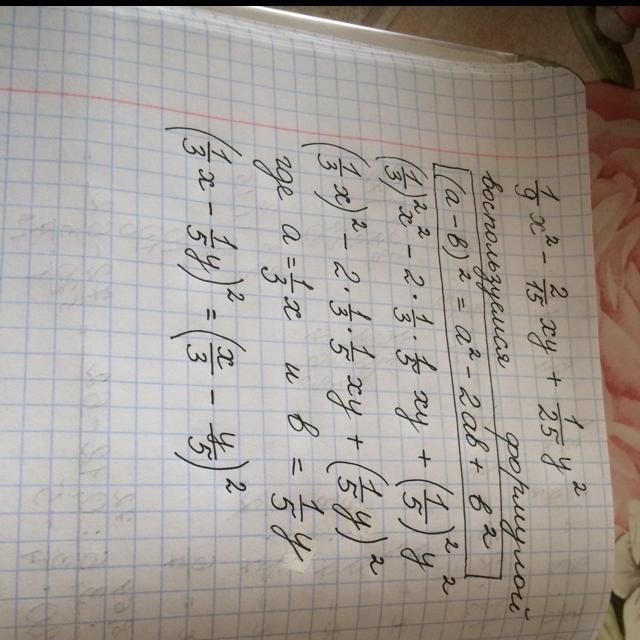 1/9 x² - 2/15 xy + 1/25 y²
воспользуемся формулой
(a-b)² = a² - 2ab + b²
(1/3)² x² - 2·1/3·1/5 xy + (1/5)² y²
(1/3 x)² - 2·1/3·1/5 xy + (1/5 y)²
где a = 1/3 x и b = 1/5 y
(1/3 x - 1/5 y)² = (x/3 - y/5)²